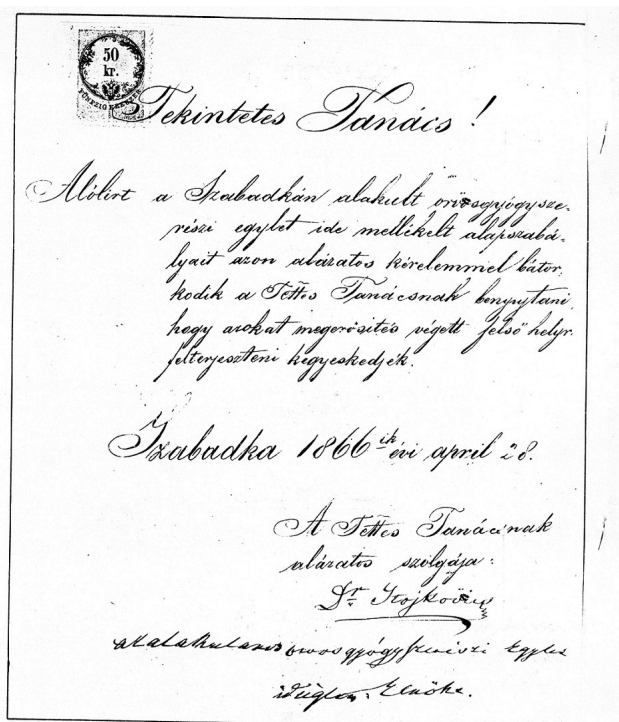 50
kr.
FÜNFZIG KREUZER
Tekintetes Tanács!
Alólirt a Szabadkán alakult orvosgyógysze-
részi egylet ide mellékelt alapszabá-
lyait azon alázatos kérelemmel bátor-
kodik a Tettes Tanácsnak benyujtani,
hogy azokat megerősítés végett felső helyr.
felterjeszteni kegyeskedjék.
Szabadka 1866ik évi april 28.
A Tettes Tanácsnak
alázatos szolgája:
Dr Stojkovics
orvosgyógyszerészi Egylet
Elnöke.